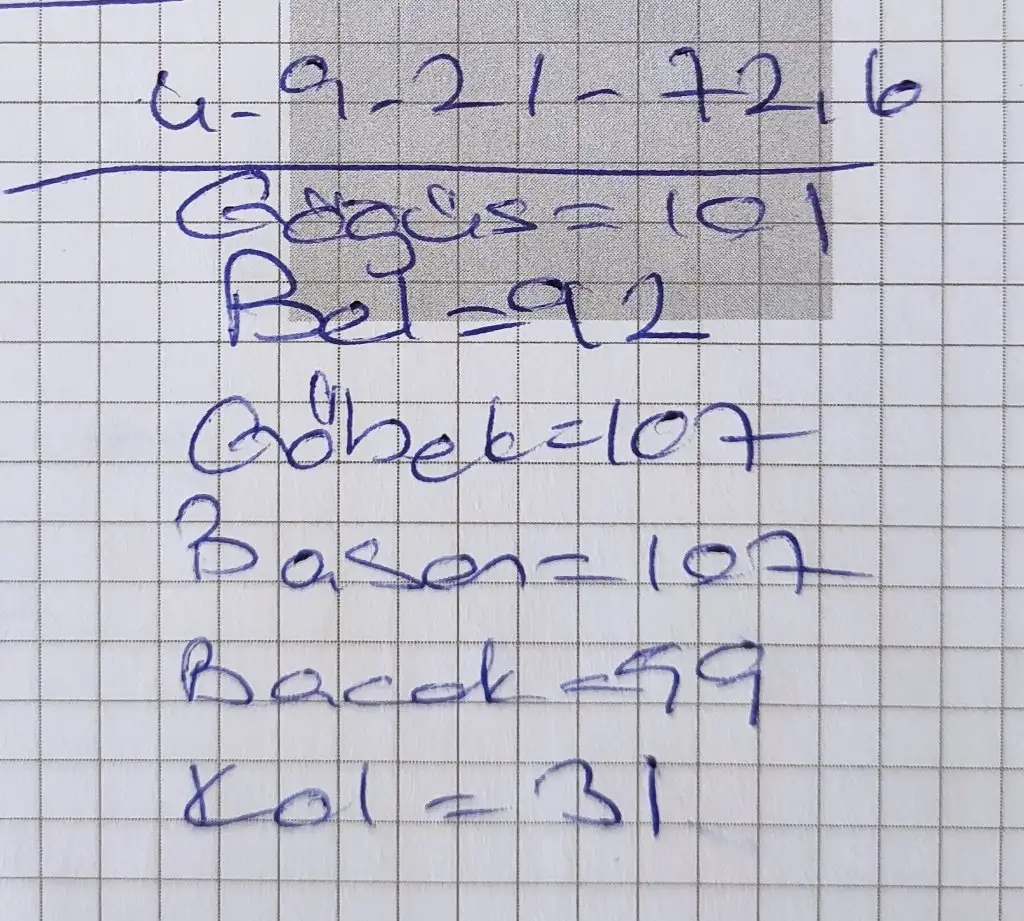 4-9-21-72,6
Göğüs=101
Bel=92
Göbek=107
Basen=107
Bacak=59
Kol=31